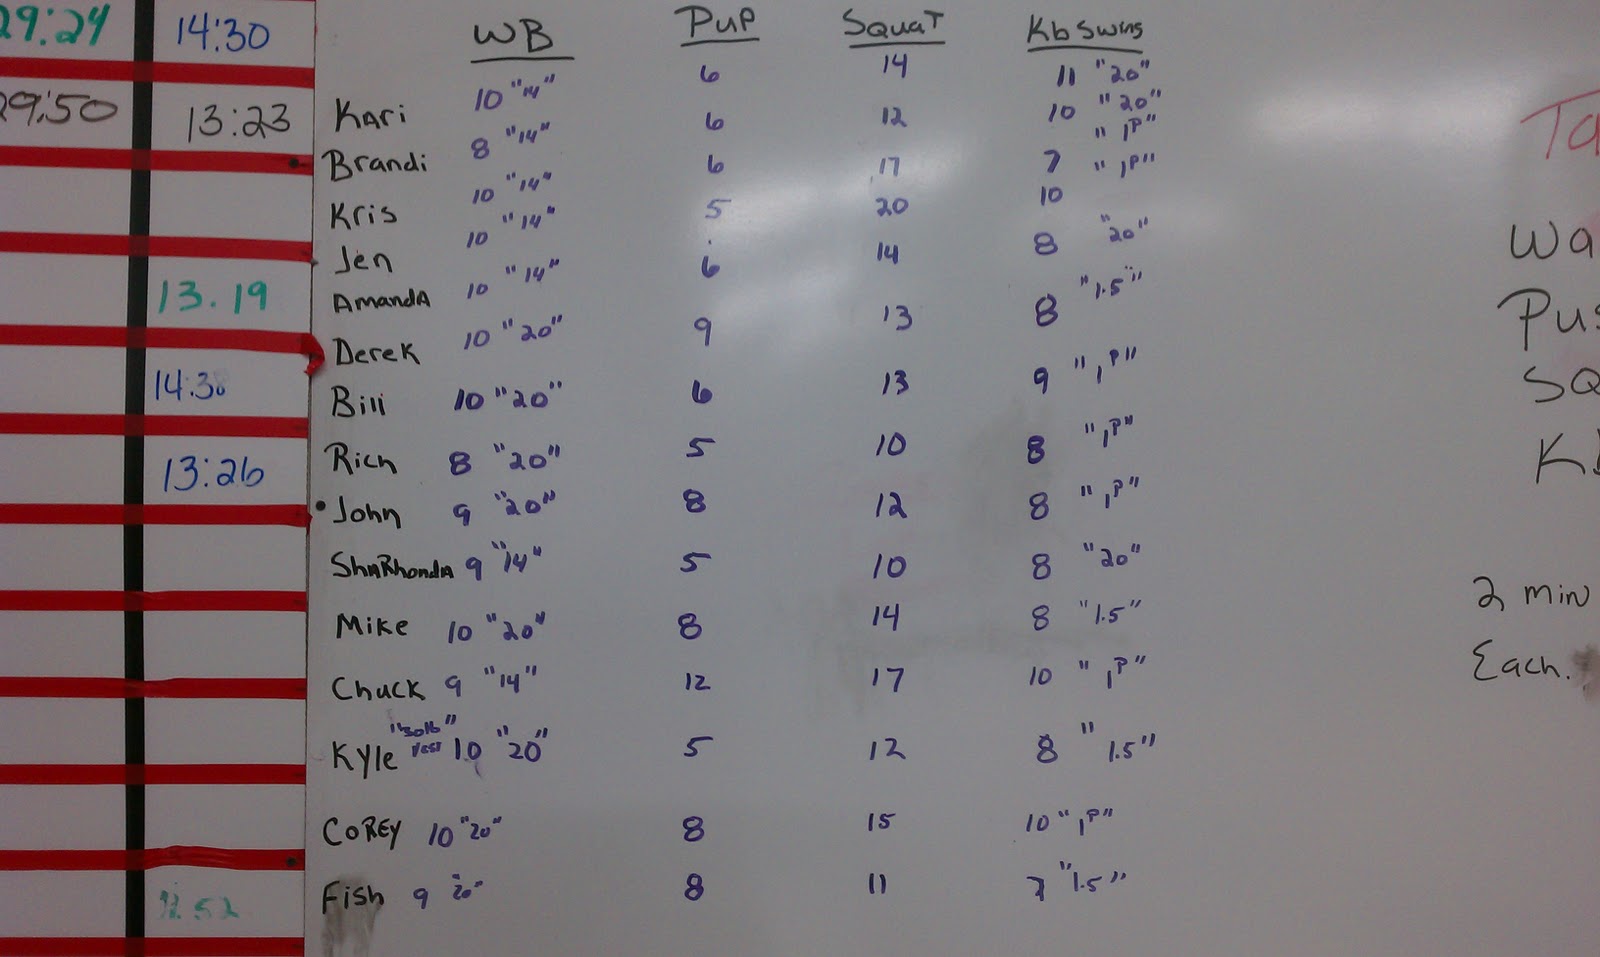 29:24 14:30 WB PUP SQUAT KbSwins
Kari 10 "14" 6 14 11 "20"
29:50 13:23
Brandi 8 "14" 6 12 10 "20"
Kris 10 "14" 6 17 7 "1P"
Jen 10 "14" 5 20 10 "1P"
Amanda 10 "14" 6 14 8 "20"
13.19
Derek 10 "20" 9 13 8 "1.5"
14:38
Bill 10 "20" 6 13 9 "1P"
Rich 8 "20" 5 10 8 "1P"
13:26
John 9 "20" 8 12 8 "1P"
ShaRhonda 9 "14" 5 10 8 "20"
Mike 10 "20" 8 14 8 "1.5"
Chuck 9 "14" 12 17 10 "1P"
Kyle "30lb" vest 10 "20" 5 12 8 "1.5"
COREY 10 "20" 8 15 10 "1P"
Fish 9 "20" 8 11 7 "1.5"
Ta
Wa
Pus
SQ
Kb
2 min
Each.